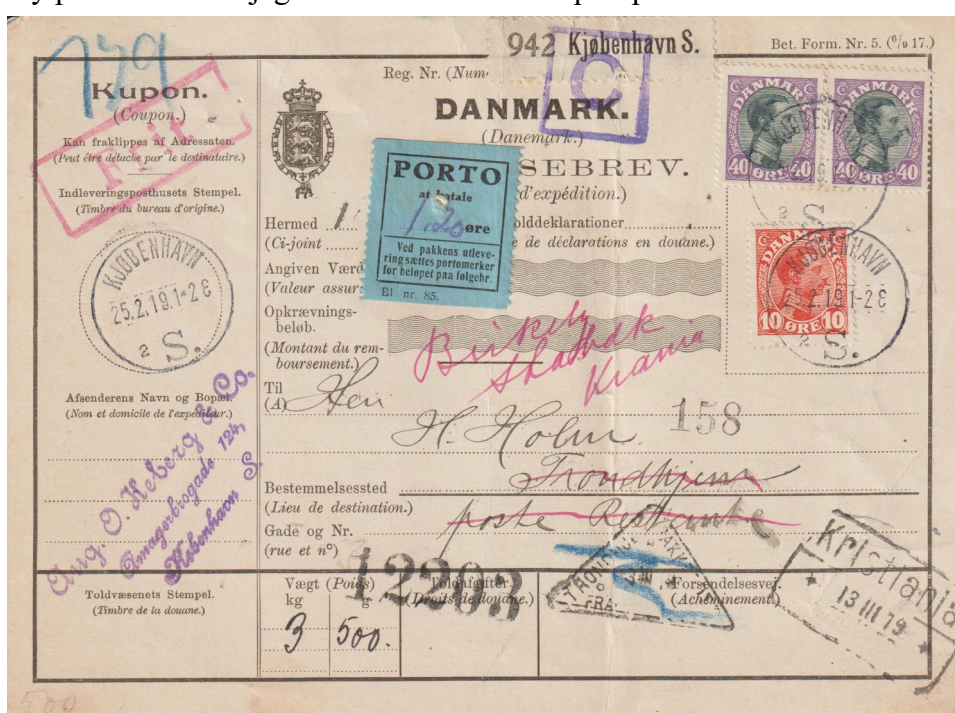 179
942 Kjøbenhavn S.
Bet. Form. Nr. 5. (6/9 17.)
C
Kupon.
(Coupon.)
Kan fraklippes af Adressaten.
(Peut être détaché par le destinataire.)
Indleveringsposthusets Stempel.
(Timbre du bureau d'origine.)
KJØBENHAVN
25.2.19.1-2 E
2 S.
Afsenderens Navn og Bopæl.
(Nom et domicile de l'expéditeur.)
Aug. O. Keberg & Co.
Amagerbrogade 124,
København S.
Toldvæsenets Stempel.
(Timbre de la douane.)
Reg. Nr. (Num
DANMARK.
(Danemark.)
SEBREV.
d'expédition.)
PORTO
at betale
120 øre
Ved pakkens utleve-
ring sættes portomerker
for beløpet paa følgebr.
Bl nr. 85.
Hermed 1
olddeklarationer
(Ci-joint
de déclarations en douane.)
Angiven Værd
(Valeur assur
Opkrævnings-
beløb.
(Montant du rem-
boursement.)
Krania
Til
(A)
Herr
H. Holm
158
Bestemmelsessted
Trondhjem
(Lieu de destination.)
poste Restante
Gade og Nr.
(rue et nº)
12203
Vægt (Poids)
kg g
3 500.
Toldafgifter.
(Droits de douane.)
Forsendelsesvej.
(Acheminement.)
DANMARK
40 ØRE 40
DANMARK
40 ØRE 40
KJØBENHAVN
2 S.
DANMARK
10 ØRE 10
KJØBENHAVN
25.2.19.1-2 E
2 S.
Kristiania
13 III 19
500